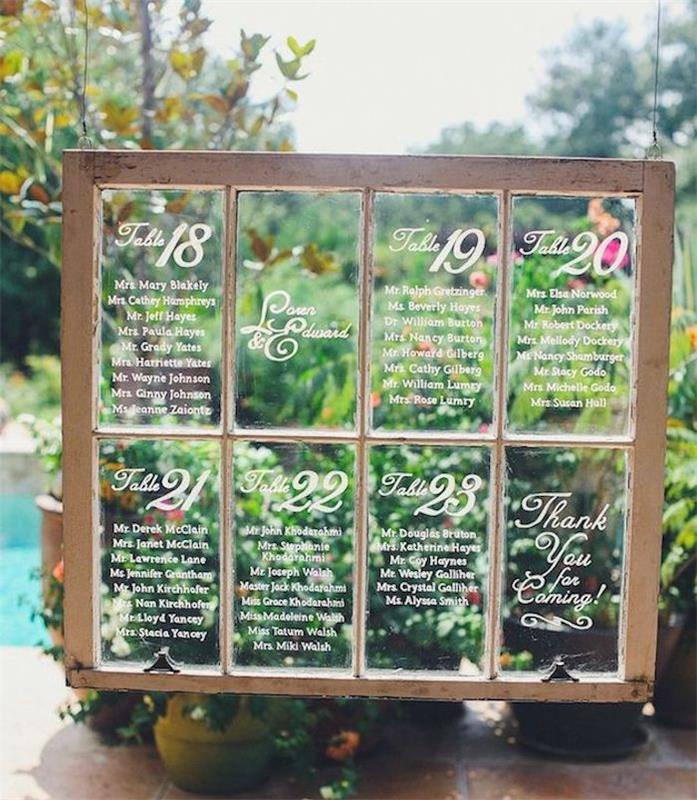 Table 18
Mrs. Mary Blakely
Mrs. Cathey Humphreys
Mr. Jeff Hayes
Mrs. Paula Hayes
Mr. Grady Yates
Mrs. Harriette Yates
Mr. Wayne Johnson
Mrs. Ginny Johnson
Ms. Jeanne Zaiontz
Loren
& Edward
Table 19
Mr. Ralph Gretzinger
Ms. Beverly Hayes
Dr William Burton
Mrs. Nancy Burton
Mr. Howard Gilberg
Mrs. Cathy Gilberg
Mr. William Lumry
Mrs. Rose Lumry
Table 20
Mrs. Elsa Norwood
Mr. John Parish
Mr. Robert Dockery
Mrs. Mellody Dockery
Ms. Nancy Shamburger
Mr. Stacy Godo
Mrs. Michelle Godo
Mrs. Susan Hull
Table 21
Mr. Derek McClain
Mrs. Janet McClain
Mr. Lawrence Lane
Ms. Jennifer Grantham
Mr. John Kirchhofer
Mrs. Nan Kirchhofer
Mr. Lloyd Yancey
Mrs. Stacia Yancey
Table 22
Mr. John Khodarahmi
Mrs. Stephanie
Khodarahmi
Mr. Joseph Walsh
Master Jack Khodarahmi
Miss Grace Khodarahmi
Miss Madeleine Walsh
Miss Tatum Walsh
Mrs. Miki Walsh
Table 23
Mr. Douglas Bruton
Mrs. Katherine Hayes
Mr. Coy Haynes
Mr. Wesley Galliher
Mrs. Crystal Galliher
Ms. Alyssa Smith
Thank
You
for
Coming!